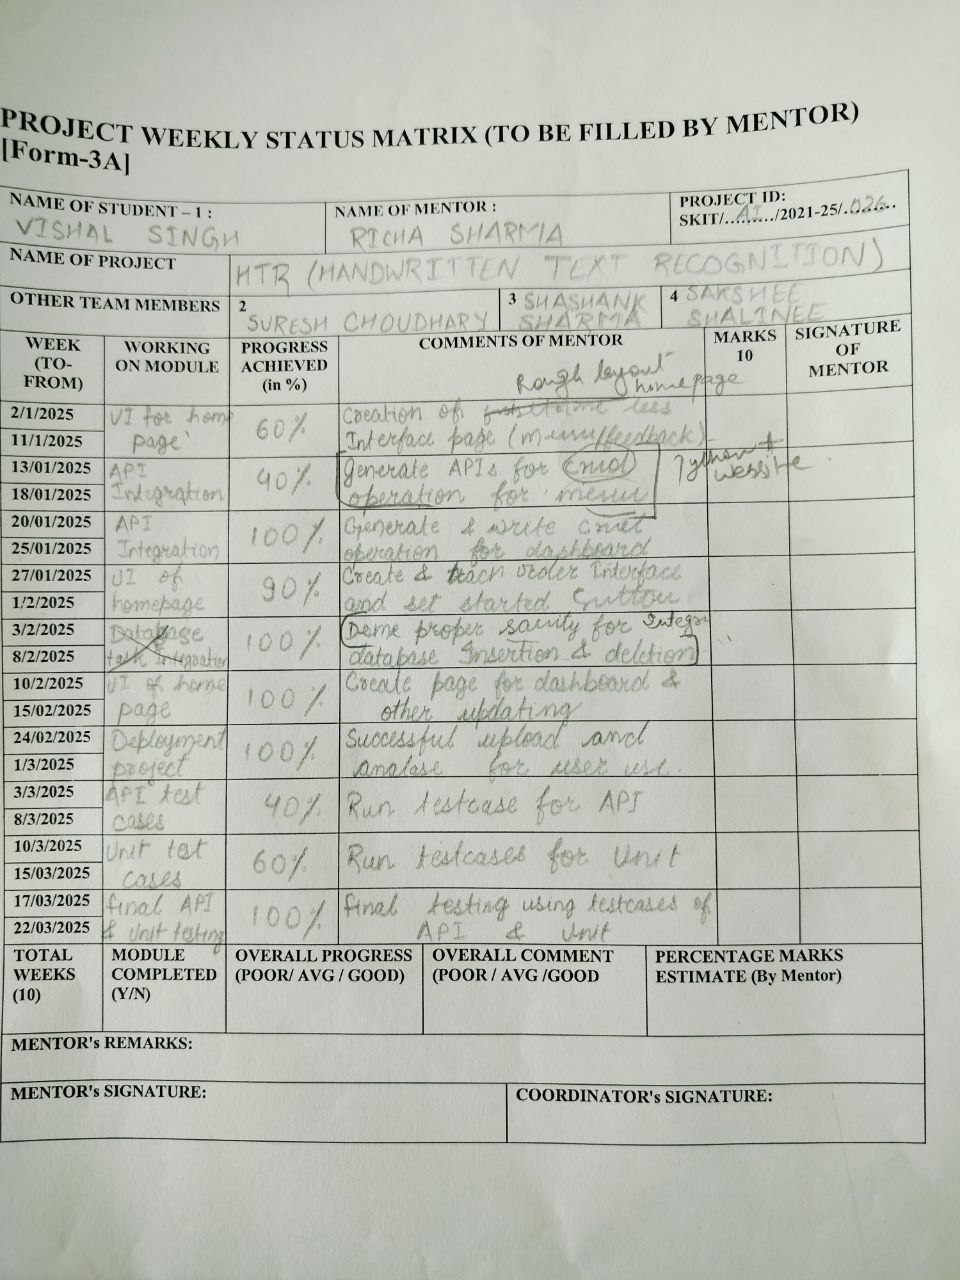 PROJECT WEEKLY STATUS MATRIX (TO BE FILLED BY MENTOR)
[Form-3A]
NAME OF STUDENT – 1 :
VISHAL SINGH
NAME OF MENTOR :
RICHA SHARMA
PROJECT ID:
SKIT/...AI....../2021-25/.026......
NAME OF PROJECT
HTR (HANDWRITTEN TEXT RECOGNITION)
OTHER TEAM MEMBERS
2
SURESH CHOUDHARY
3 SHASHANK
SHARMA
4 SAKSHEE
SHALINEE
WEEK
(TO-
FROM)
WORKING
ON MODULE
PROGRESS
ACHIEVED
(in %)
COMMENTS OF MENTOR
MARKS
10
SIGNATURE
OF
MENTOR
Rough layout
homepage
2/1/2025
11/1/2025
UI for home
page
60%
Creation of less
Interface page (menu/feedback)
13/01/2025
18/01/2025
API
Integration
40%
Generate APIs for
operation for menu
Python +
website
20/01/2025
25/01/2025
API
Integration
100%
Generate & write
operation for dashboard
27/01/2025
1/2/2025
UI of
homepage
90%
Create & track order Interface
and set started button
3/2/2025
8/2/2025
Database
task Integration
100%
proper for Integr
database Insertion & deletion
10/2/2025
15/02/2025
UI of home
page
100%
Create page for dashboard &
other updating
24/02/2025
1/3/2025
Deployment
project
100%
Successful upload and
for user use.
3/3/2025
8/3/2025
API test
cases
40%
Run testcase for API
10/3/2025
15/03/2025
Unit test
cases
60%
Run testcases for Unit
17/03/2025
22/03/2025
final API
& Unit testing
100%
final testing using testcases of
API & Unit
TOTAL
WEEKS
(10)
MODULE
COMPLETED
(Y/N)
OVERALL PROGRESS
(POOR/ AVG / GOOD)
OVERALL COMMENT
(POOR / AVG /GOOD
PERCENTAGE MARKS
ESTIMATE (By Mentor)
MENTOR's REMARKS:
MENTOR's SIGNATURE:
COORDINATOR's SIGNATURE: